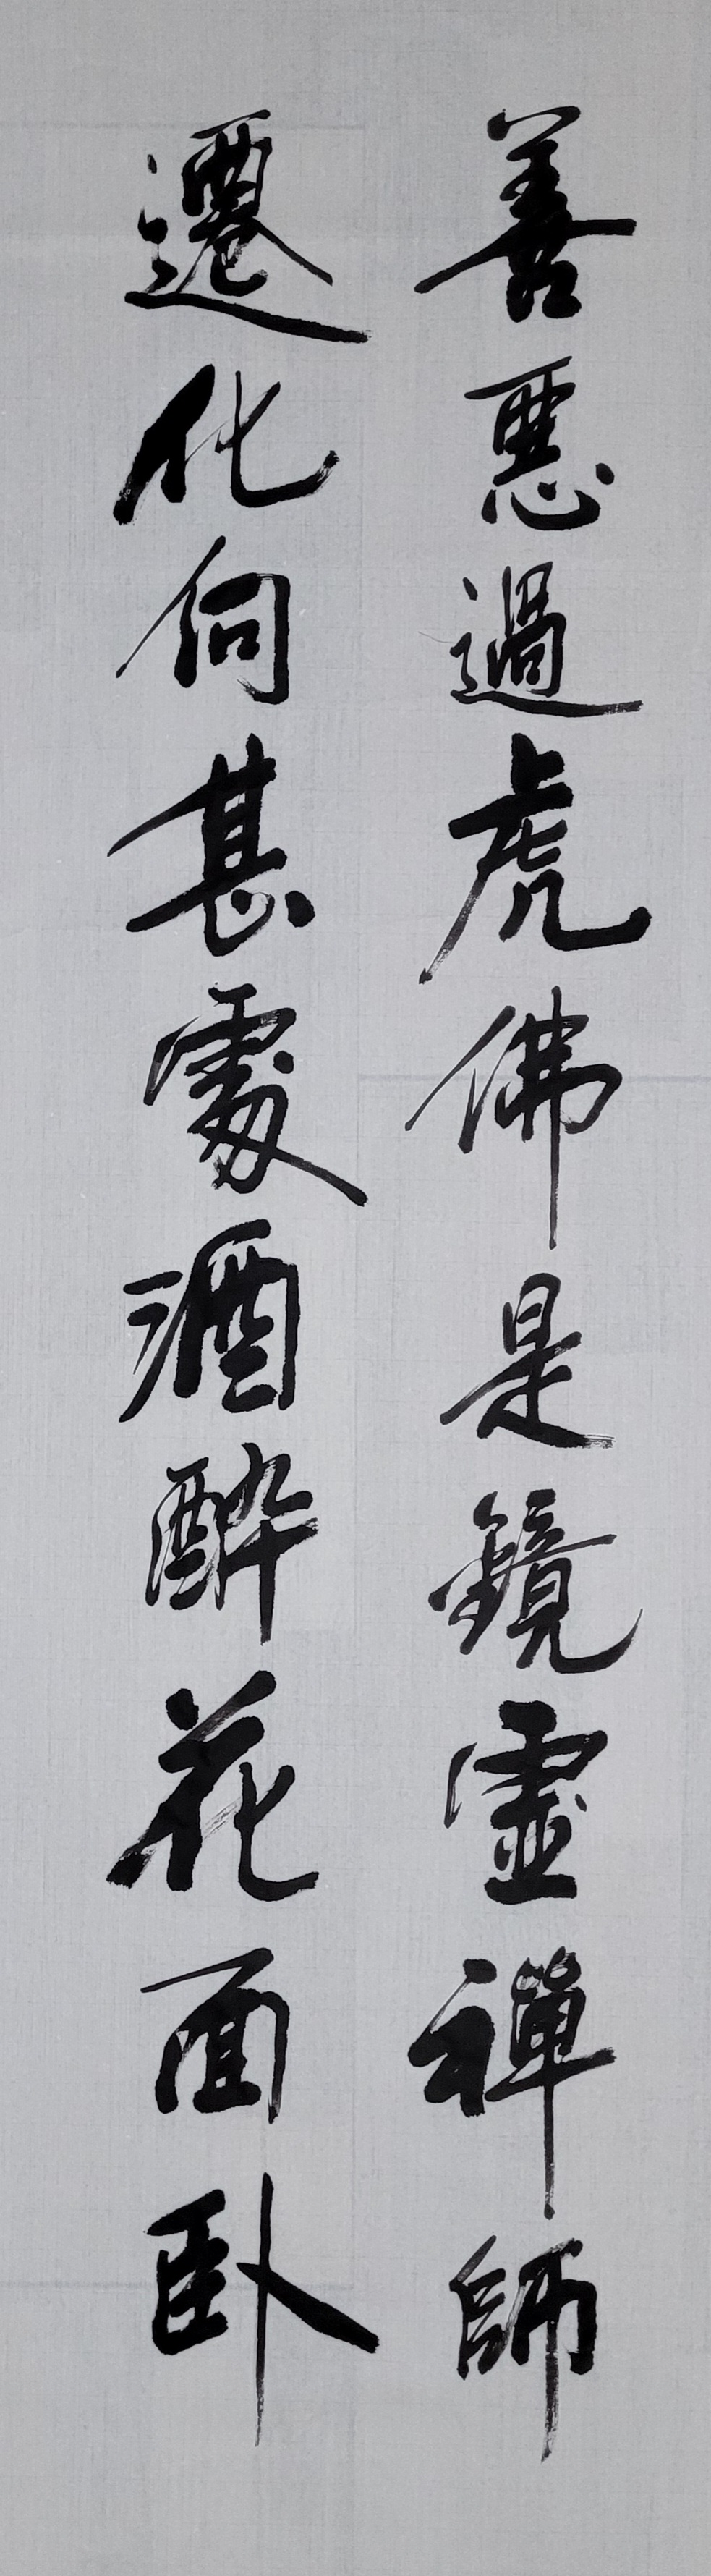 善惡過虎佛是鏡靈禪師
遷化向甚處酒醉花面臥